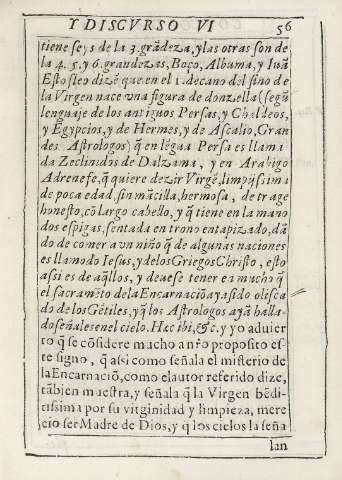 Y DISCVRSO VI 56
tiene se, 5 de la 3. grãdeza, y las otras son de
la 4. 5. y 6. grandezas, Boço, Albuma, y Iuã
Estofleo dizẽ que en el 1. decano del sino de
la Virgen nace vna figura de donzella (segũ
lenguaje de los antiguos Persas, y Chaldeos,
y Egypcios, y de Hermes, y de Ascalio, Gran
des Astrologos) q̃ en lẽgua Persa es llama
da Zeclinidos de Dalzama, y en Arabigo
Adrenefe, q̃ quiere dezir Virgẽ, limpijssima
de poca edad, sin mãcilla, hermosa, de trage
honesto, cõ largo cabello, y q̃ tiene en la mano
dos espigas, sentada en trono entapizado, dã
do de comer a vn niño q̃ de algunas naciones
es llamodo Iesus, y delos Griegos Christo, esto
assi es de aq̃llos, y deuese tener en mucho q̃
el sacramẽto de la Encarnaciõ aya sido olisca
do de los Gẽtiles, y q̃ los Astrologos ayã halla-
do señales en el cielo. Hæc ibi, &c. y yo aduier
to q̃ se cõsidere mucho a nr̃o proposito es-
te signo, q̃ assi como señala el misterio de
la Encarnaciõ, como el autor referido dize,
tãbien muestra, y señala q̃ la Virgen bẽdi-
tissima por su vitginidad y limpieza, mere
cio ser Madre de Dios, y q̃ los cielos la seña
lan